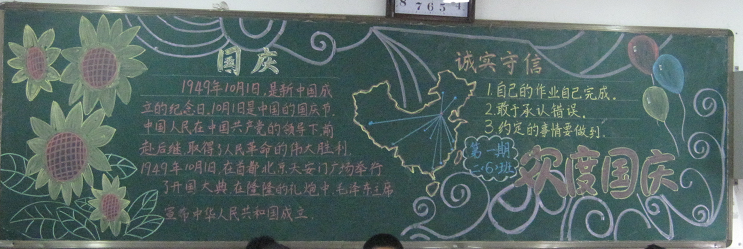 国庆
1949年10月1日,是新中国成
立的纪念日,10月1日是中国的国庆节.
中国人民在中国共产党的领导下,前
赴后继,取得了人民革命的伟大胜利.
1949年10月1日,在首都北京天安门广场举行
了开国大典,在隆隆的礼炮中,毛泽东主席
宣布中华人民共和国成立.
诚实守信
1.自己的作业自己完成.
2.敢于承认错误.
3.约定的事情要做到.
第一期
二.(6)班
欢度国庆
8 7 6 5 4